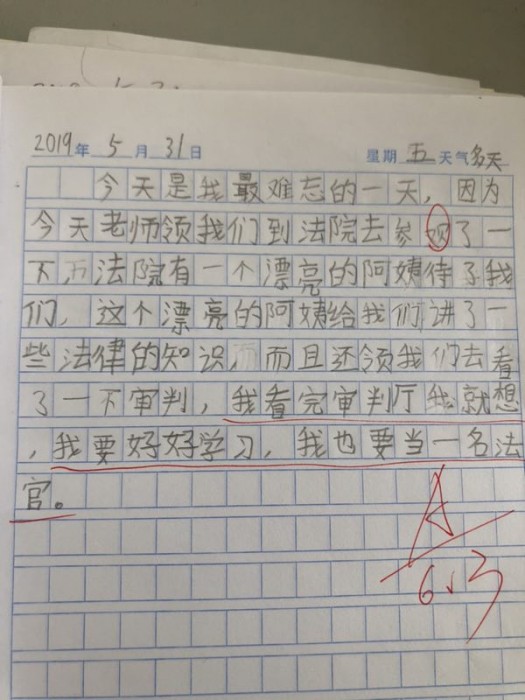 2019年 5月 31日 星期五 天气多天
今天是我最难忘的一天，因为
今天老师领我们到法院去参观了一
下，法院有一个漂亮的阿姨待了我
们，这个漂亮的阿姨给我们讲了一
些法律的知识，而且还领我们去看
了一下审判，我看完审判厅我就想
，我要好好学习，我也要当一名法
官。
A
6.3